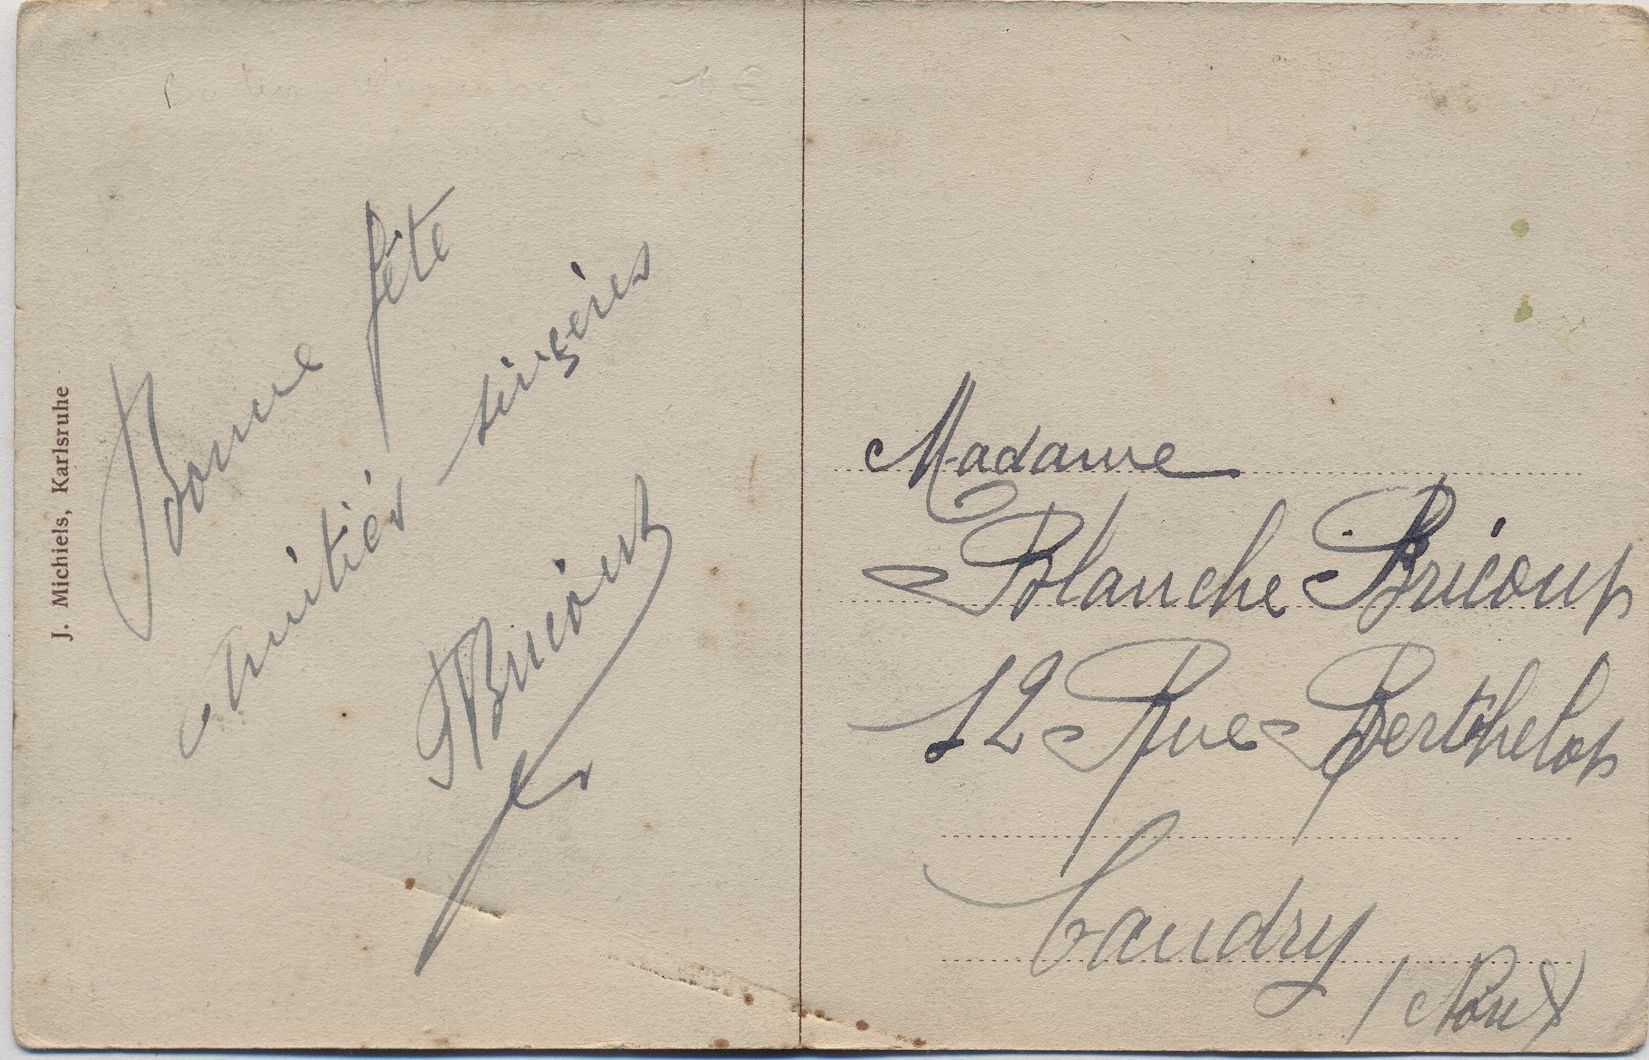 J. Michiels, Karlsruhe
1 €
Bonne fête
Amitiés sincères
Bricout
Madame
Blanche Bricout
12 Rue Berthelot
Caudry
Nord